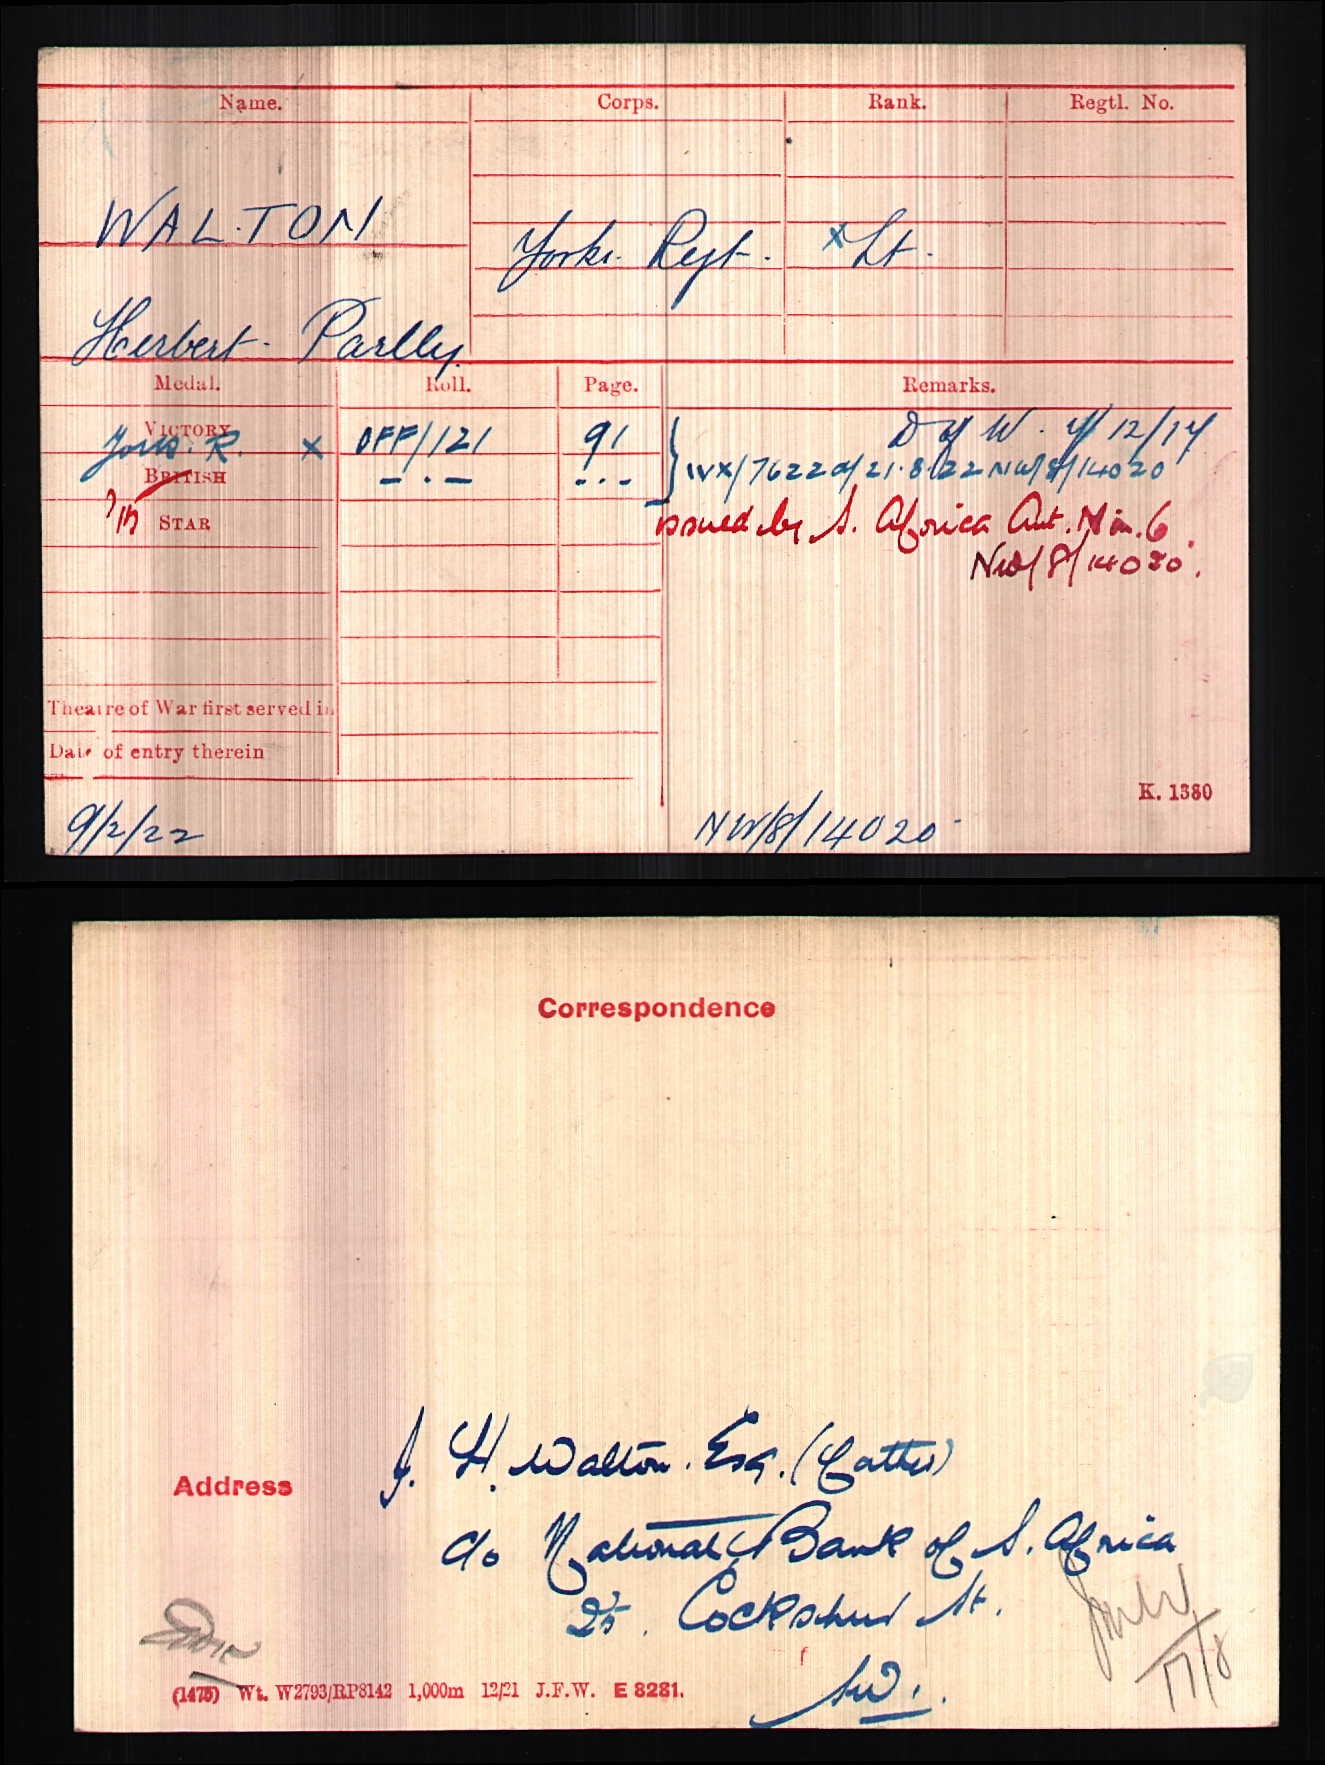 Name. Corps. Rank. Regtl. No.
WALTON
Yorks. Regt. x Lt.
Herbert Parlby.
Medal. Roll. Page. Remarks.
VICTORY
Yorks. R. x OFF/121 91 D of W. 4/12/17
BRITISH -.- -.- IVX/7622 d/21.8.22 NW/8/14020
STAR issued by S. Africa Aut. Min. 6
NW/8/14020.
Theatre of War first served in
Date of entry therein
K. 1380
9/2/22 NW/8/14020
Correspondence
J. H. Walton. Esq. (father)
Address
c/o National Bank of S. Africa
25. Cockspur St.
17/8
SW1.
(1475) Wt. W2793/RP8142 1,000m 12/21 J.F.W. E 8281.